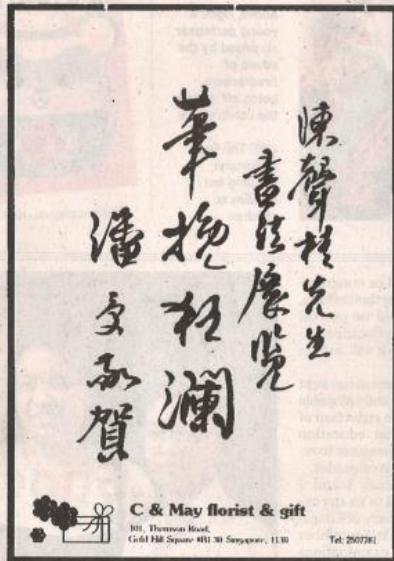 陳聲桂先生
書法展覽
筆挽狂瀾
潘受敬賀
C & May florist & gift
101, Thomson Road,
Gold Hill Square #B1-30 Singapore, 1130
Tel: 2507781